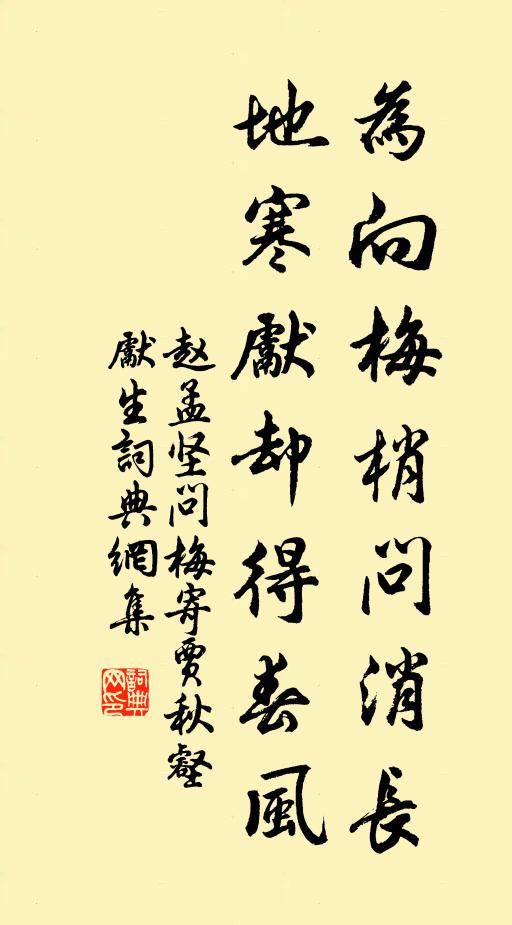 為向梅梢問消長
地寒獻却得春風
赵孟坚問梅寄賈秋壑
獻生詞典網集
詞典
网印